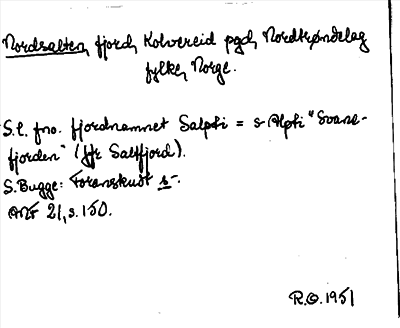 Nordsalten, fjord, Kolvereid pgd, Nordtrøndelag
fylke, Norge.
S.l. fno. fjordnamnet Salpti = s-Alpti "Svane-
fjorden" (jfr Saltfjord).
S. Bugge: Foranskudt s-.
ANF 21, s. 150.
R.O. 1951